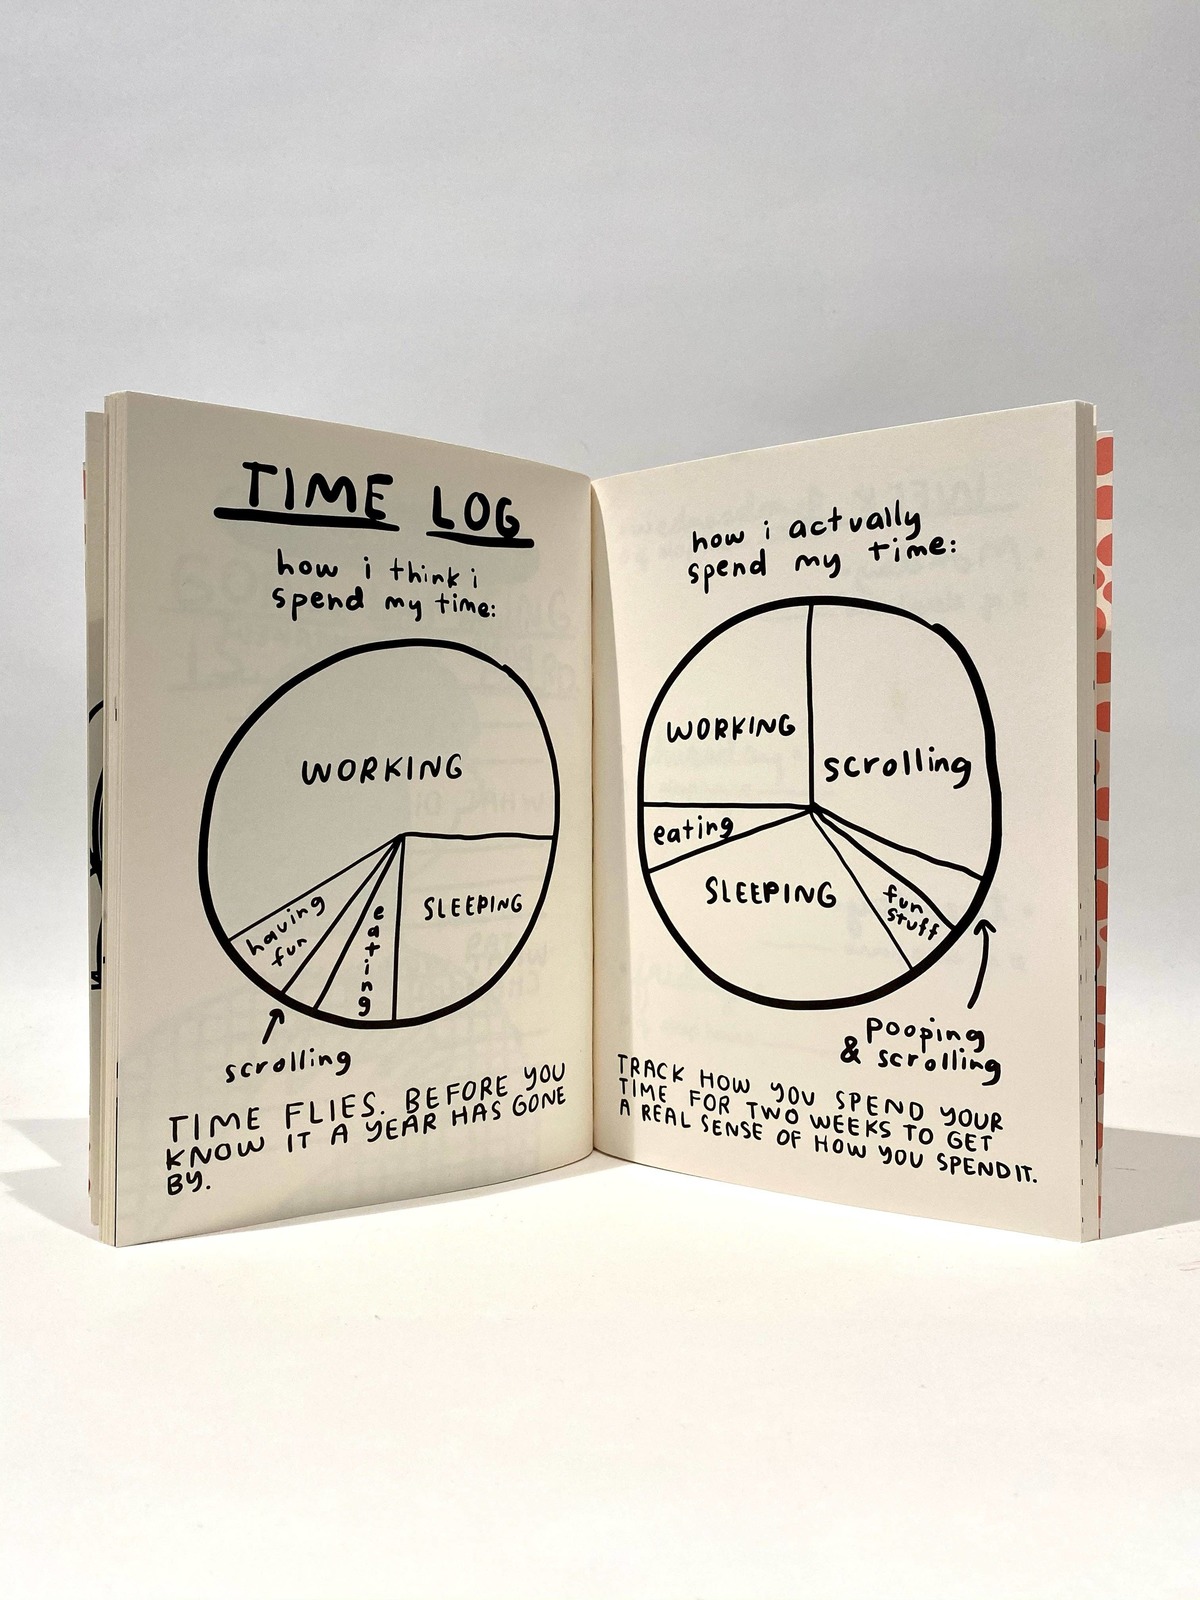 TIME LOG
how i think i
spend my time:
WORKING
SLEEPING
eating
having
fun
scrolling
TIME FLIES. BEFORE YOU
KNOW IT A YEAR HAS GONE
BY.
how i actually
spend my time:
WORKING
scrolling
eating
SLEEPING
fun
stuff
pooping
& scrolling
TRACK HOW YOU SPEND YOUR
TIME FOR TWO WEEKS TO GET
A REAL SENSE OF HOW YOU SPEND IT.